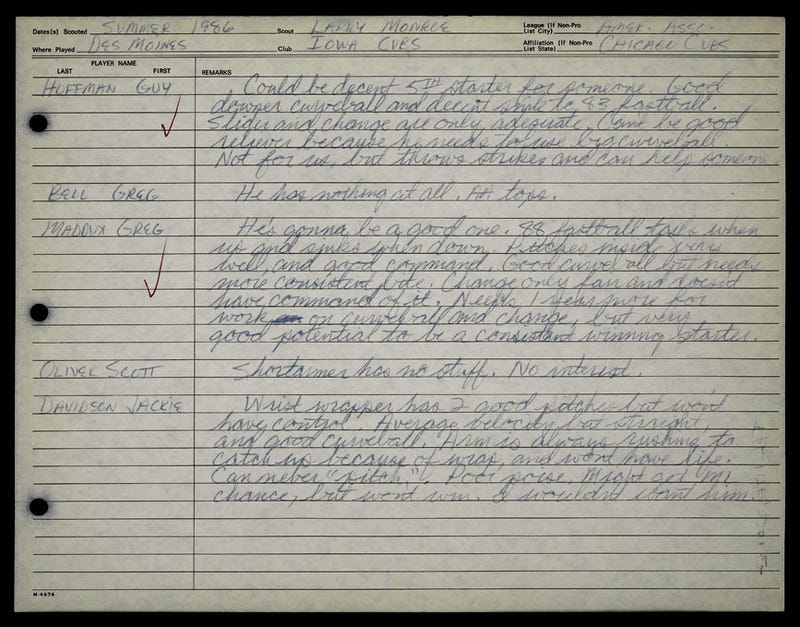 Date(s) Scouted SUMMER 1986 Scout LARRY MONROE League (If Non-Pro List City) AMER. ASSC.
Where Played DES MOINES Club IOWA CUBS Affiliation (If Non-Pro List State) CHICAGO CUBS
PLAYER NAME
LAST FIRST REMARKS
HOFFMAN GUY Could be decent 5TH starter for someone. Good
downer curveball and decent sinke to 83 fastball.
Slider and change are only adequate. Could be good
reliever because he needs to use big curveball.
Not for us, but throws strikes and can help someone.
BELL GREG He has nothing at all. AA tops.
MADDUX GREG He's gonna be a good one. 88 fastball tails when
up and sinks when down. Pitches inside very
well, and good command. Good curveball but needs
more consistent bite. Change only fair and doesnt
have command of it. Needs 1 year more for
work on curveball and change, but very
good potential to be a consistant winning starter.
OLIVER SCOTT Shortarmer has no stuff. No interest.
DAVIDSON JACKIE Wrist wrapper has 2 good pitches but won't
have control. Average velocity but straight,
and good curveball. Arm is always rushing to
catch up because of wrap, and wont have life.
Can never "pitch". Poor poise. Might get ML
chance, but wont win. I wouldnt want him.
M-4676